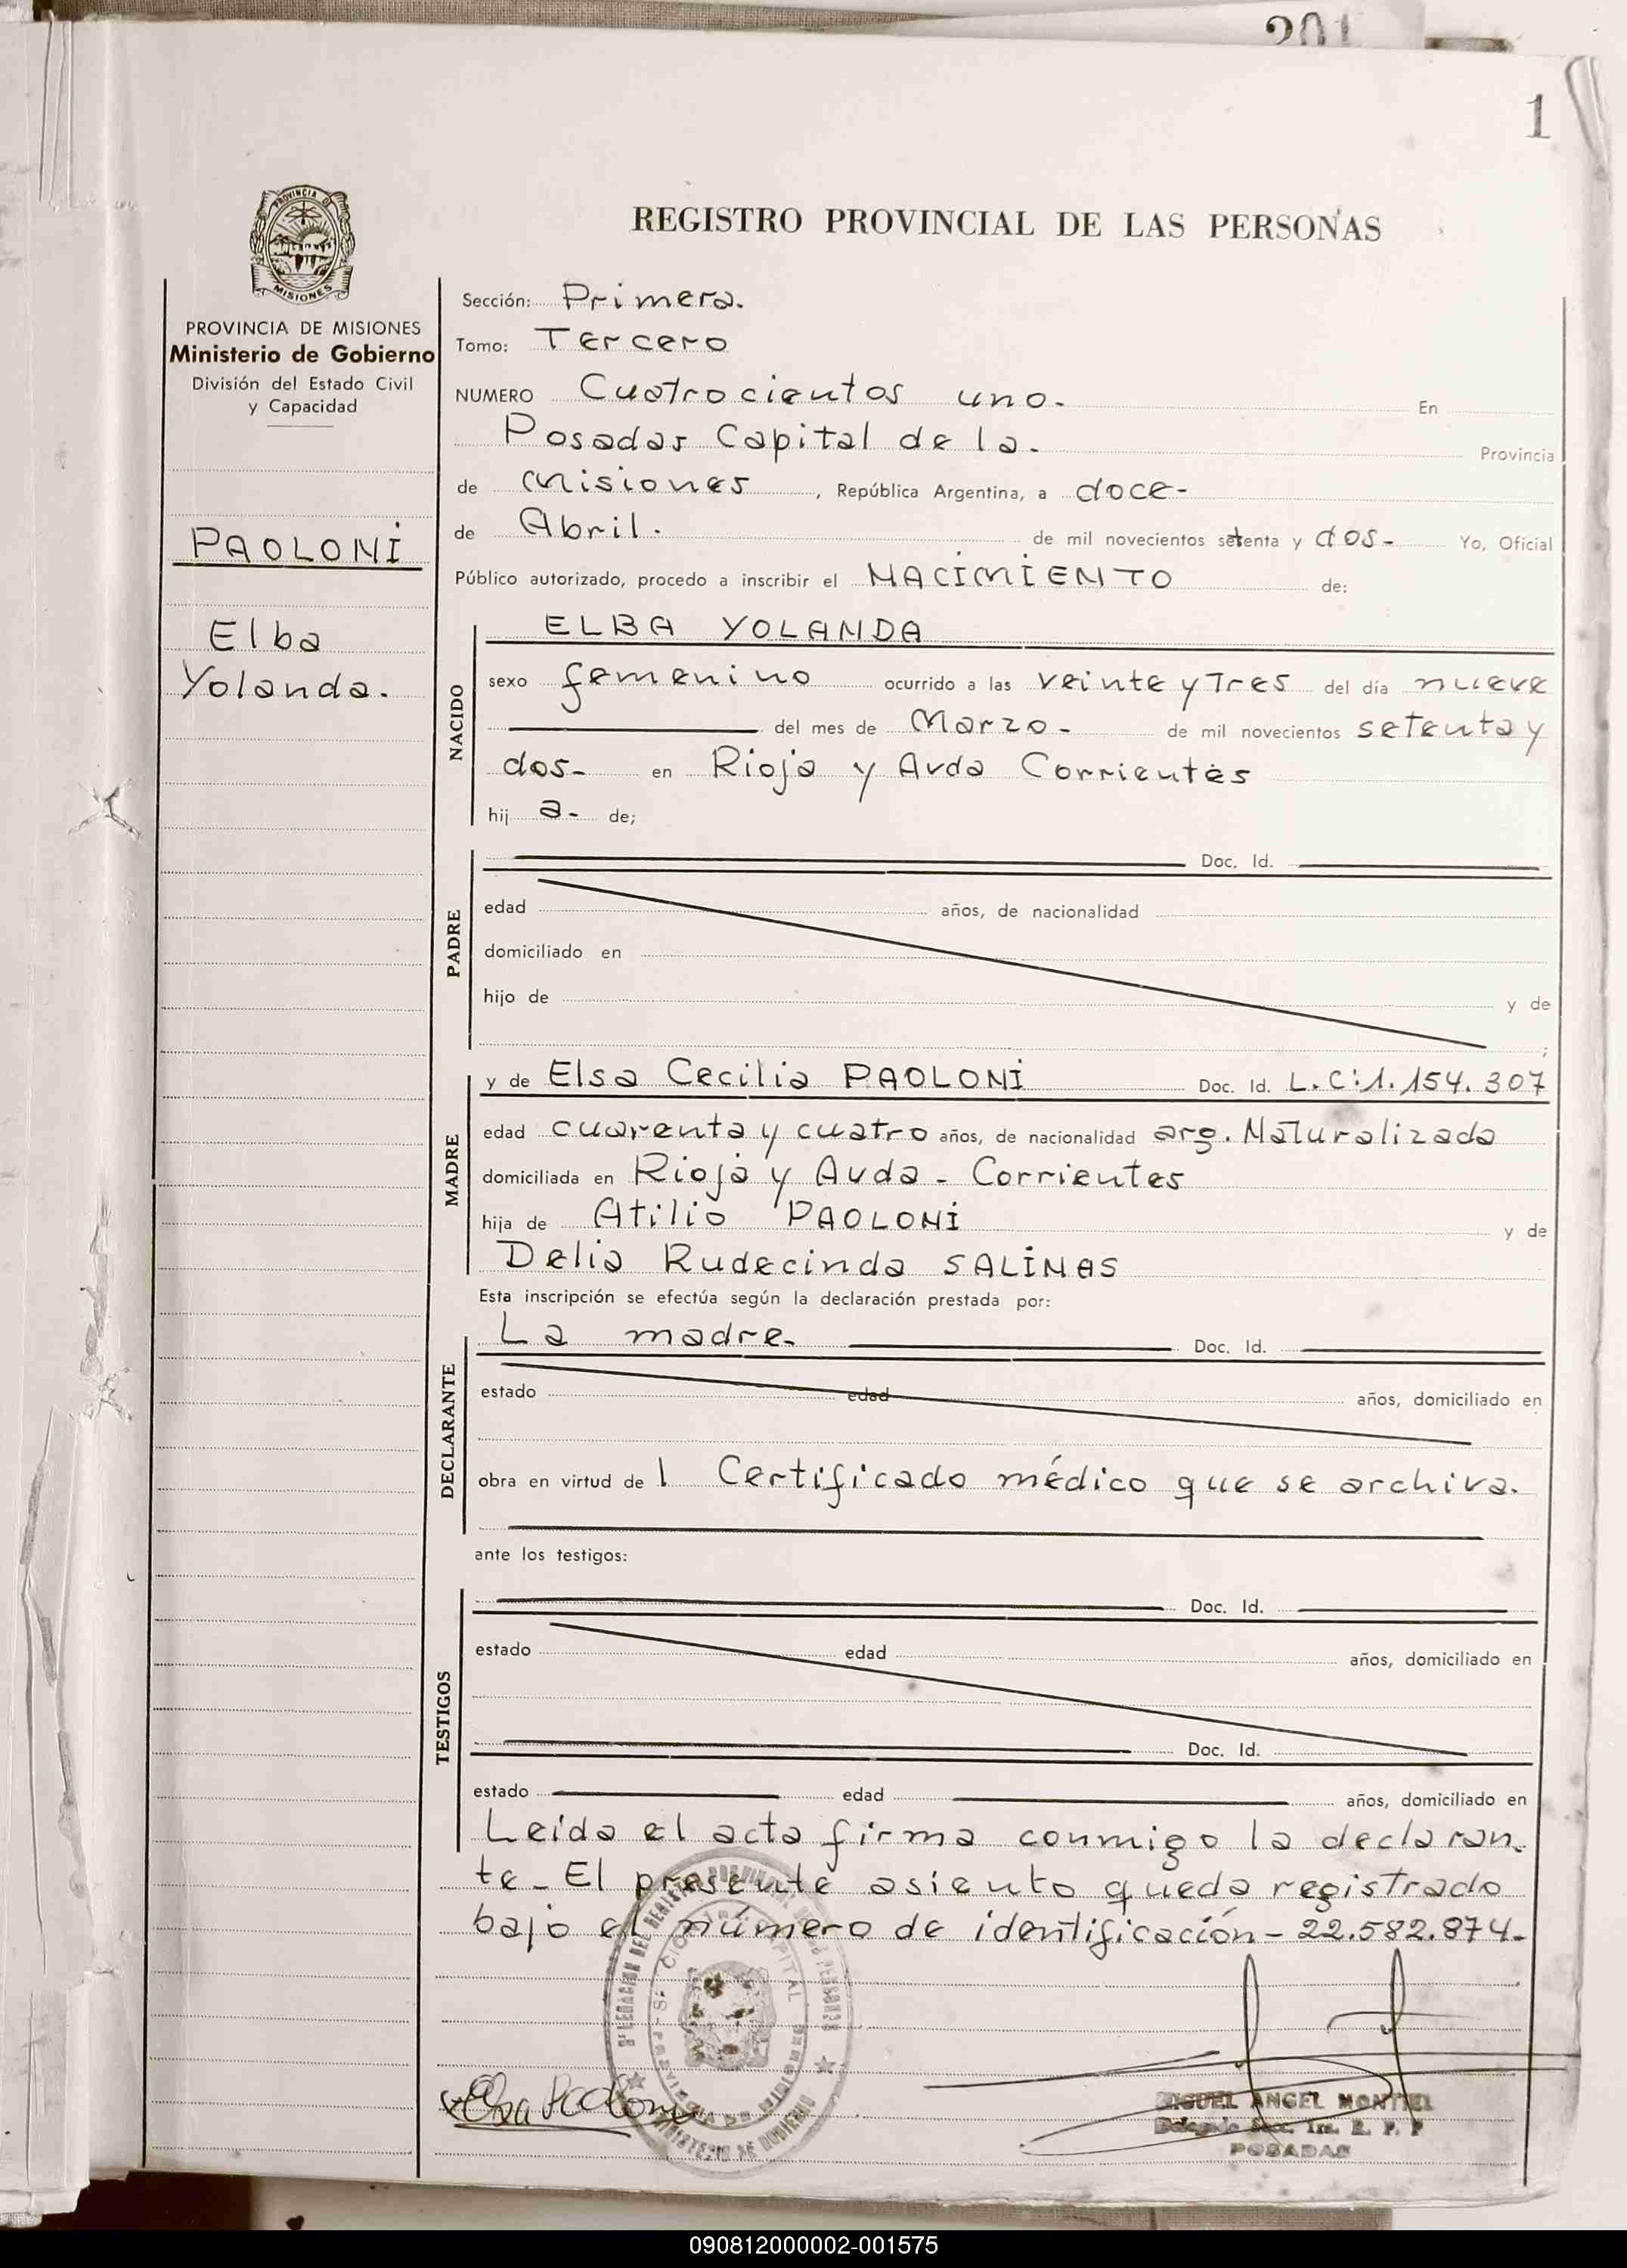 201
1
PROVINCIA DE
MISIONES
REGISTRO PROVINCIAL DE LAS PERSONAS
PROVINCIA DE MISIONES
Ministerio de Gobierno
División del Estado Civil
y Capacidad
PAOLONI
Elba
Yolanda.
Sección: Primera.
Tomo: Tercero
NUMERO Cuatrocientos uno. En
Posadas Capital de la. Provincia
de Misiones, República Argentina, a doce-
de Abril. de mil novecientos setenta y dos- Yo, Oficial
Público autorizado, procedo a inscribir el NACIMIENTO de:
NACIDO
ELBA YOLANDA
sexo femenino ocurrido a las veinte y Tres del día nueve
del mes de Marzo- de mil novecientos setenta y
dos- en Rioja y Avda Corrientes
hij a- de;
PADRE
Doc. Id.
edad años, de nacionalidad
domiciliado en
hijo de y de
;
MADRE
y de Elsa Cecilia PAOLONI Doc. Id. L.C:1.154.307
edad cuarenta y cuatro años, de nacionalidad arg. Naturalizada
domiciliada en Rioja y Avda - Corrientes
hija de Atilio PAOLONI y de
Delia Rudecinda SALINAS
Esta inscripción se efectúa según la declaración prestada por:
DECLARANTE
La madre- Doc. Id.
estado edad años, domiciliado en
obra en virtud de l Certificado médico que se archiva.
ante los testigos:
TESTIGOS
Doc. Id.
estado edad años, domiciliado en
Doc. Id.
estado edad años, domiciliado en
Leida el acta firma conmigo la declaran-
te- El presente asiento queda registrado
bajo el número de identificación- 22.582.874-
Elsa Paoloni
MIGUEL ANGEL MONTIEL
POSADAS
090812000002-001575